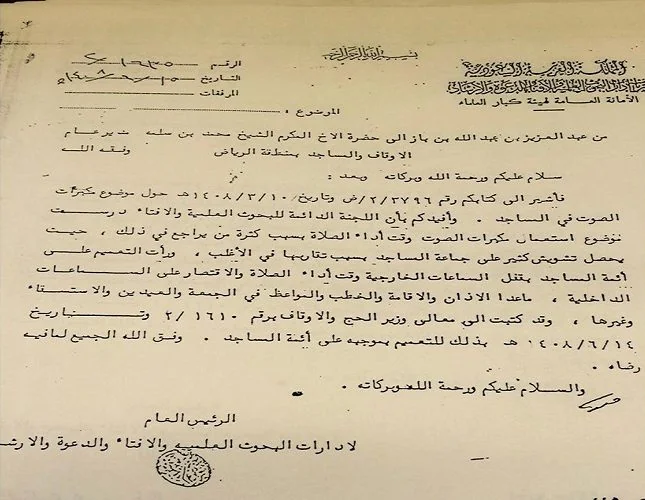 بسم الله الرحمن الرحيم
المملكة العربية السعودية
الأمانة العامة لهيئة كبار العلماء
الرقم ١٦٣٥ / ٢
التاريخ ١٥ / ٦ / ١٤٠٨ هـ
المرفقات
الموضوع :
من عبد العزيز بن عبد الله بن باز الى حضرة الاخ المكرم الشيخ محمد بن مدير عام
الاوقاف والمساجد بمنطقة الرياض وفقه الله
سلام عليكم ورحمة الله وبركاته وبعد :
فأشير الى كتابكم رقم ٢/٣٧٩٦/ض وتاريخ ١٤٠٨/٣/١٠هـ حول موضوع مكبرات
الصوت في المساجد . وأفيدكم بأن اللجنة الدائمة للبحوث العلمية والافتاء درست
موضوع استعمال مكبرات الصوت وقت أداء الصلاة بسبب كثرة من يراجع في ذلك ، حيث
يحصل تشويش كثير على جماعة المساجد بسبب تقاربها في الأغلب ، ورأت التعميم على
أئمة المساجد بقفل السماعات الخارجية وقت أداء الصلاة والاقتصار على السماعات
الداخلية ، ماعدا الاذان والاقامة والخطب والمواعظ في الجمعة والعيدين والاستسقاء
وغيرها ، وقد كتبت الى معالي وزير الحج والاوقاف برقم ١٦١٠ /٢ وتاريخ
١٤٠٨/٦/١٤ هـ بذلك للتعميم بموجبه على أئمة المساجد . وفق الله الجميع لما فيه
رضاه .
والسلام عليكم ورحمة الله وبركاته .
الرئيس العام
لادارات البحوث العلمية والافتاء والدعوة والارشاد